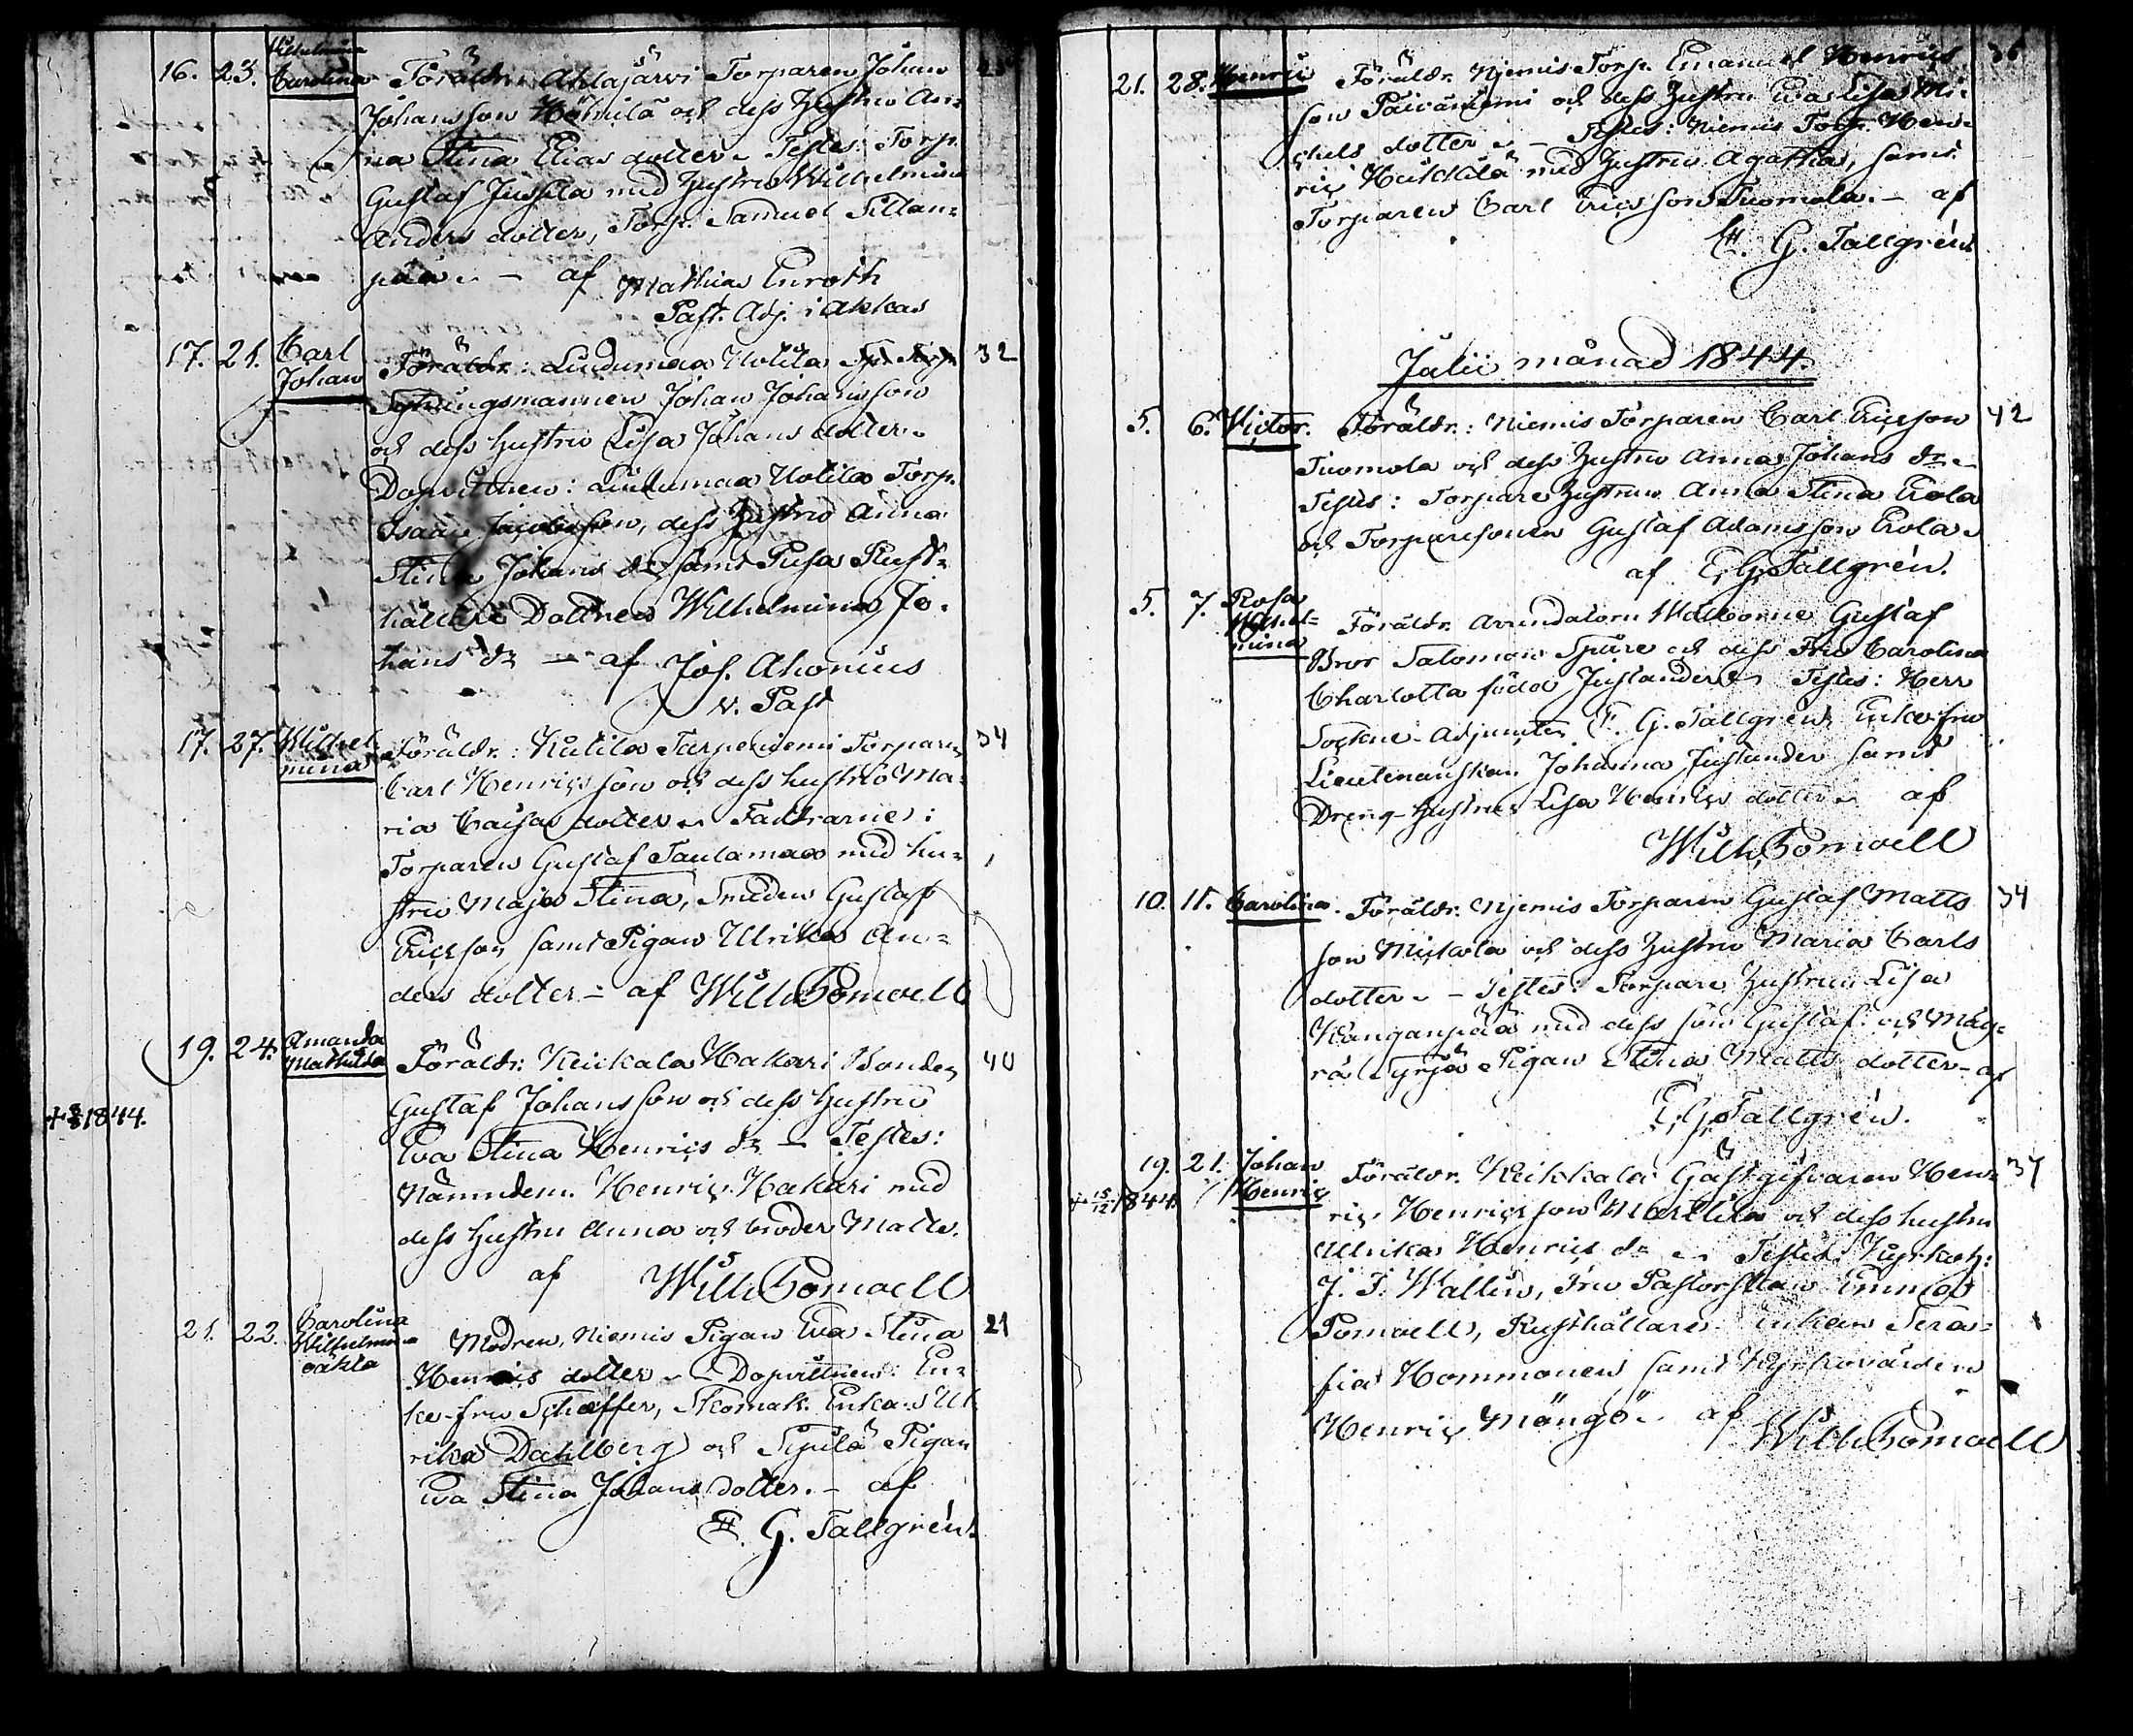 Wilhelmina
16. 23. Carolina Föräldr. Ahlajärvi Torparen Johan
Johansson Höhnilä och dess Hustru An-
na Stina Elias dotter. Testes: Torp.
Gustaf Jussila med Hustru Wilhelmina
Anders dotter, Torp. Samuel Sillan-
pää. – af Mathias Enroth
Past. Adj. i Akkas
17. 21. Carl Johan Föräldr.: Lindumaa Uotila 32
Sytningsmannen Johan Johansson
och dess hustru Lisa Johans dotter.
Dopvittnen: Lindumaa Uotila Torp.
Isaac Jacobsson, dess Hustru Anna
Stina Johans dr, samt Pusa Rust-
hållare Dottren Wilhelmina Jo-
hans dr – af Jos. Ahonius
v. Past
17. 27. Wilhelmina Föräldr.: Kutila Tarpeniemi Torparen 34
Carl Henricsson och dess hustru Ma-
ria Caisas dotter. Faddrarne:
Torparen Gustaf Taulamaa med hu-
stru Maja Stina, Smeden Gustaf
Ericsson samt Pigan Ulrika An-
ders dotter – af Wilh. Pomoell
19. 24. Amanda Mathilda Föräldr: Keickala Hakari Bonden 40
Gustaf Johansson och dess Hustru
+ 1844.
Eva Stina Henrics dr – Testes:
Nämndem. Henric Hakari med
dess Hustru Anna och broder Matts.
af Wilh. Pomoell
21. 22. Carolina Wilhelmina oäkta Modren, Niemis Pigan Eva Stina 21
Henrics dotter – Dopvittnen: En-
ke-fru Schæffer, Skomak. Enkan Ul-
rika Dahlberg och Sipilä Pigan
Eva Stina Johans dotter. – af
E. G. Tallgrén.
21. 28. Henric Föräldr. Njemis Torp. Emanuel Henrics 36
son Päiväniemi och dess Hustru Eva Lisa Mi-
chels dotter. – Testes: Niemis Torp. Hen-
ric Heickilä med Hustru Agatha, samt
Torparen Carl Ericsson Tuomola. – af
E. G. Tallgrén
Julii månad 1844.
5. 6. Victor. Föräldr.: Niemis Torparen Carl Ericson 42
Tuomola och dess Hustru Anna Johans dr.
Testes: Torpare Hustrun Anna Stina Erola
och Torparesonen Gustaf Adamsson Erola.
af E. G. Tallgrén.
5. 7. Rosa Wilhelmina Föräldr. Arrendatorn Välborne Gustaf
Bror Salomon Spåre och dess Fru Carolina
Charlotta född Juslander. Testes: Herr
Sockne-Adjuncten E. G. Tallgrén, Enkefru
Lieutenanskan Johanna Juslander samt
Dreng-Hustrun Lisa Henrics dotter. af
Wilh. Pomoell
10. 11. Carolina. Föräldr. Njemis Torparen Gustaf Matts 34
son Mickola och dess Hustru Maria Carls
dotter. – Testes: Torpare Hustrun Lisa
Kanganpää med dess son Gustaf och Mäy-
rä Pigan Stina Matts dotter – af
E. G. Tallgrén.
19. 21. Johan Henric Föräldr. Keikkala Gästgifvaren Hen- 37
+ 15/12 1844.
ric Henricsson Marttila och dess hustru
Ulrika Henrics dr. Testes: Kyrkoh:
J. F. Wallin, Fru Pastorskan Emma
Pomoell, Rusthållare Enkan Sera-
fia Hommonen samt Kyrkovärden
Henric Mängö. af Wilh. Pomoell